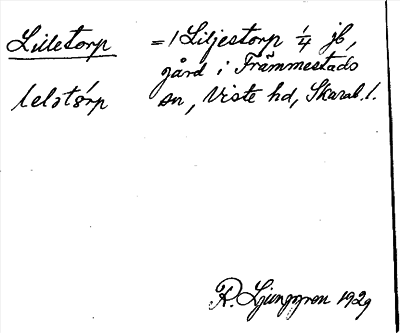 Lilletorp = / Liljestorp 1/4 jb,
gård i Främmestads
lelstörp sn, Viste hd, Skarab. l.
R. Ljunggren 1929